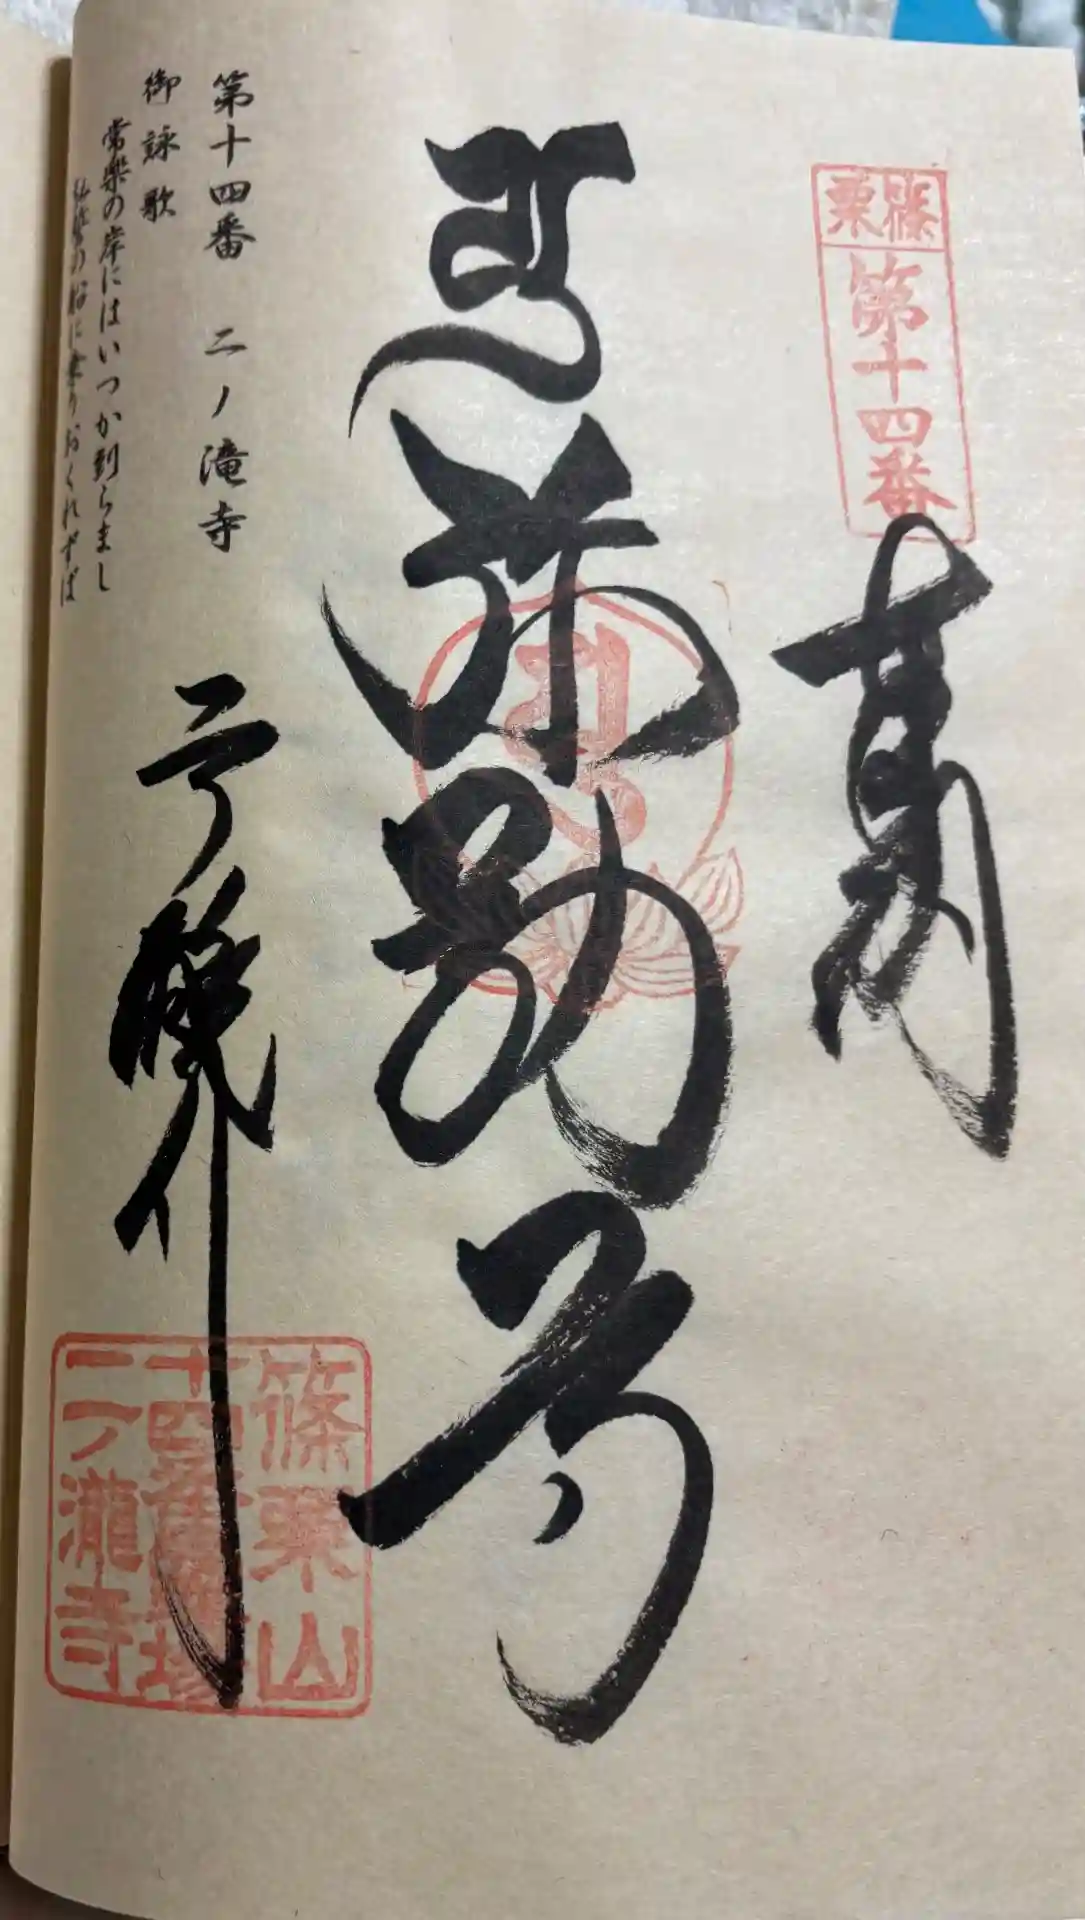 篠栗
第十四番
奉納
弥勒
篠栗山
十四番霊場
二ノ瀧寺
第十四番 二ノ滝寺
御詠歌
常楽の岸にはいつか到らまし
弘誓の船に乗りおくれずば